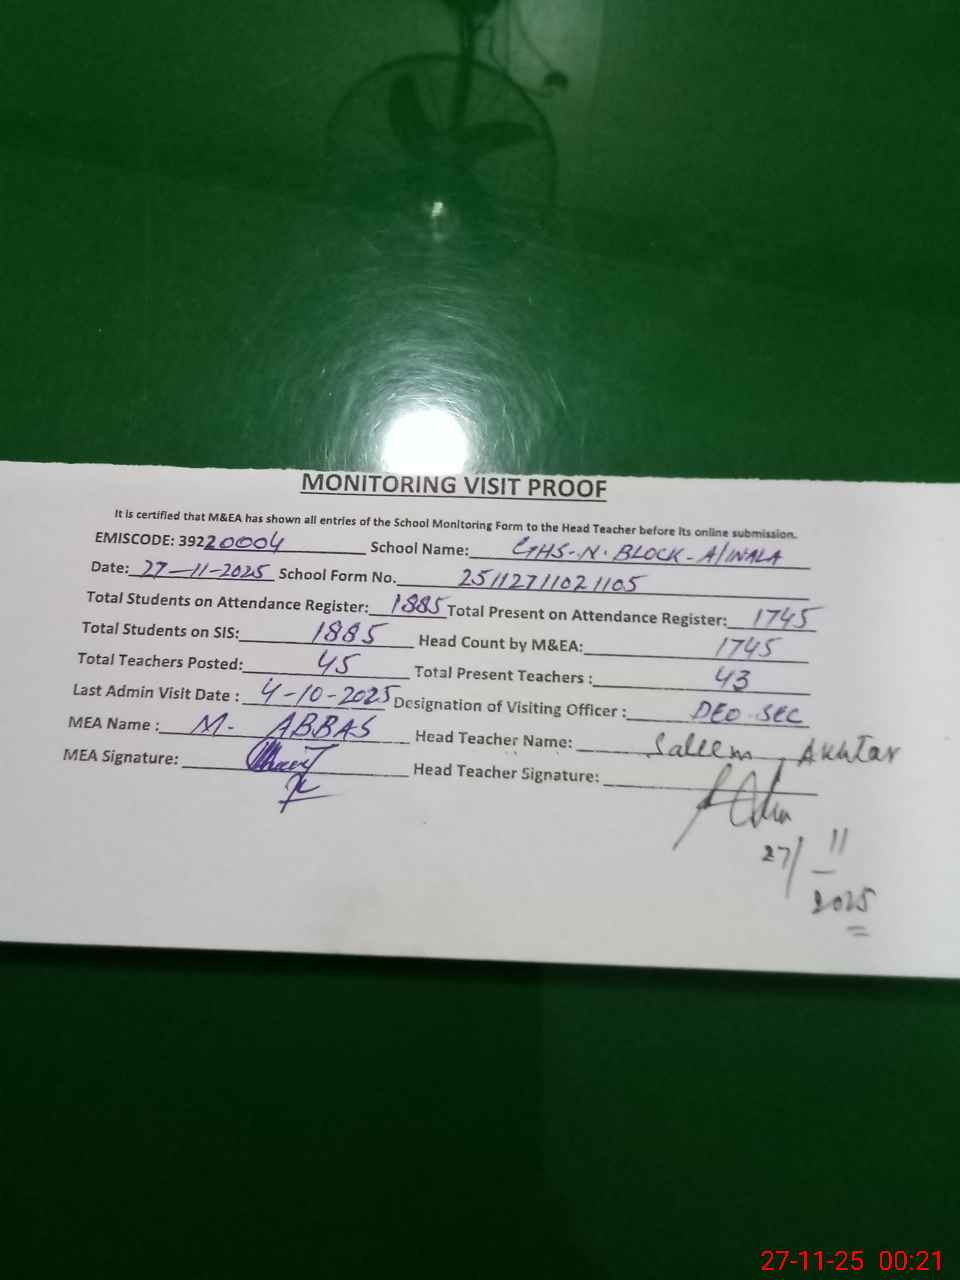 MONITORING VISIT PROOF
It is certified that M&EA has shown all entries of the School Monitoring Form to the Head Teacher before its online submission.
EMISCODE: 39220004 School Name: GHS-N. BLOCK-A/WALA
Date: 27-11-2025 School Form No. 25112711021105
Total Students on Attendance Register: 1885 Total Present on Attendance Register: 1745
Total Students on SIS: 1885 Head Count by M&EA: 1745
Total Teachers Posted: 45 Total Present Teachers : 43
Last Admin Visit Date : 4-10-2025 Designation of Visiting Officer : DEO-SEC
MEA Name : M. ABBAS Head Teacher Name: Saleem Akhtar
MEA Signature: Head Teacher Signature:
27/11
2025
27-11-25 00:21